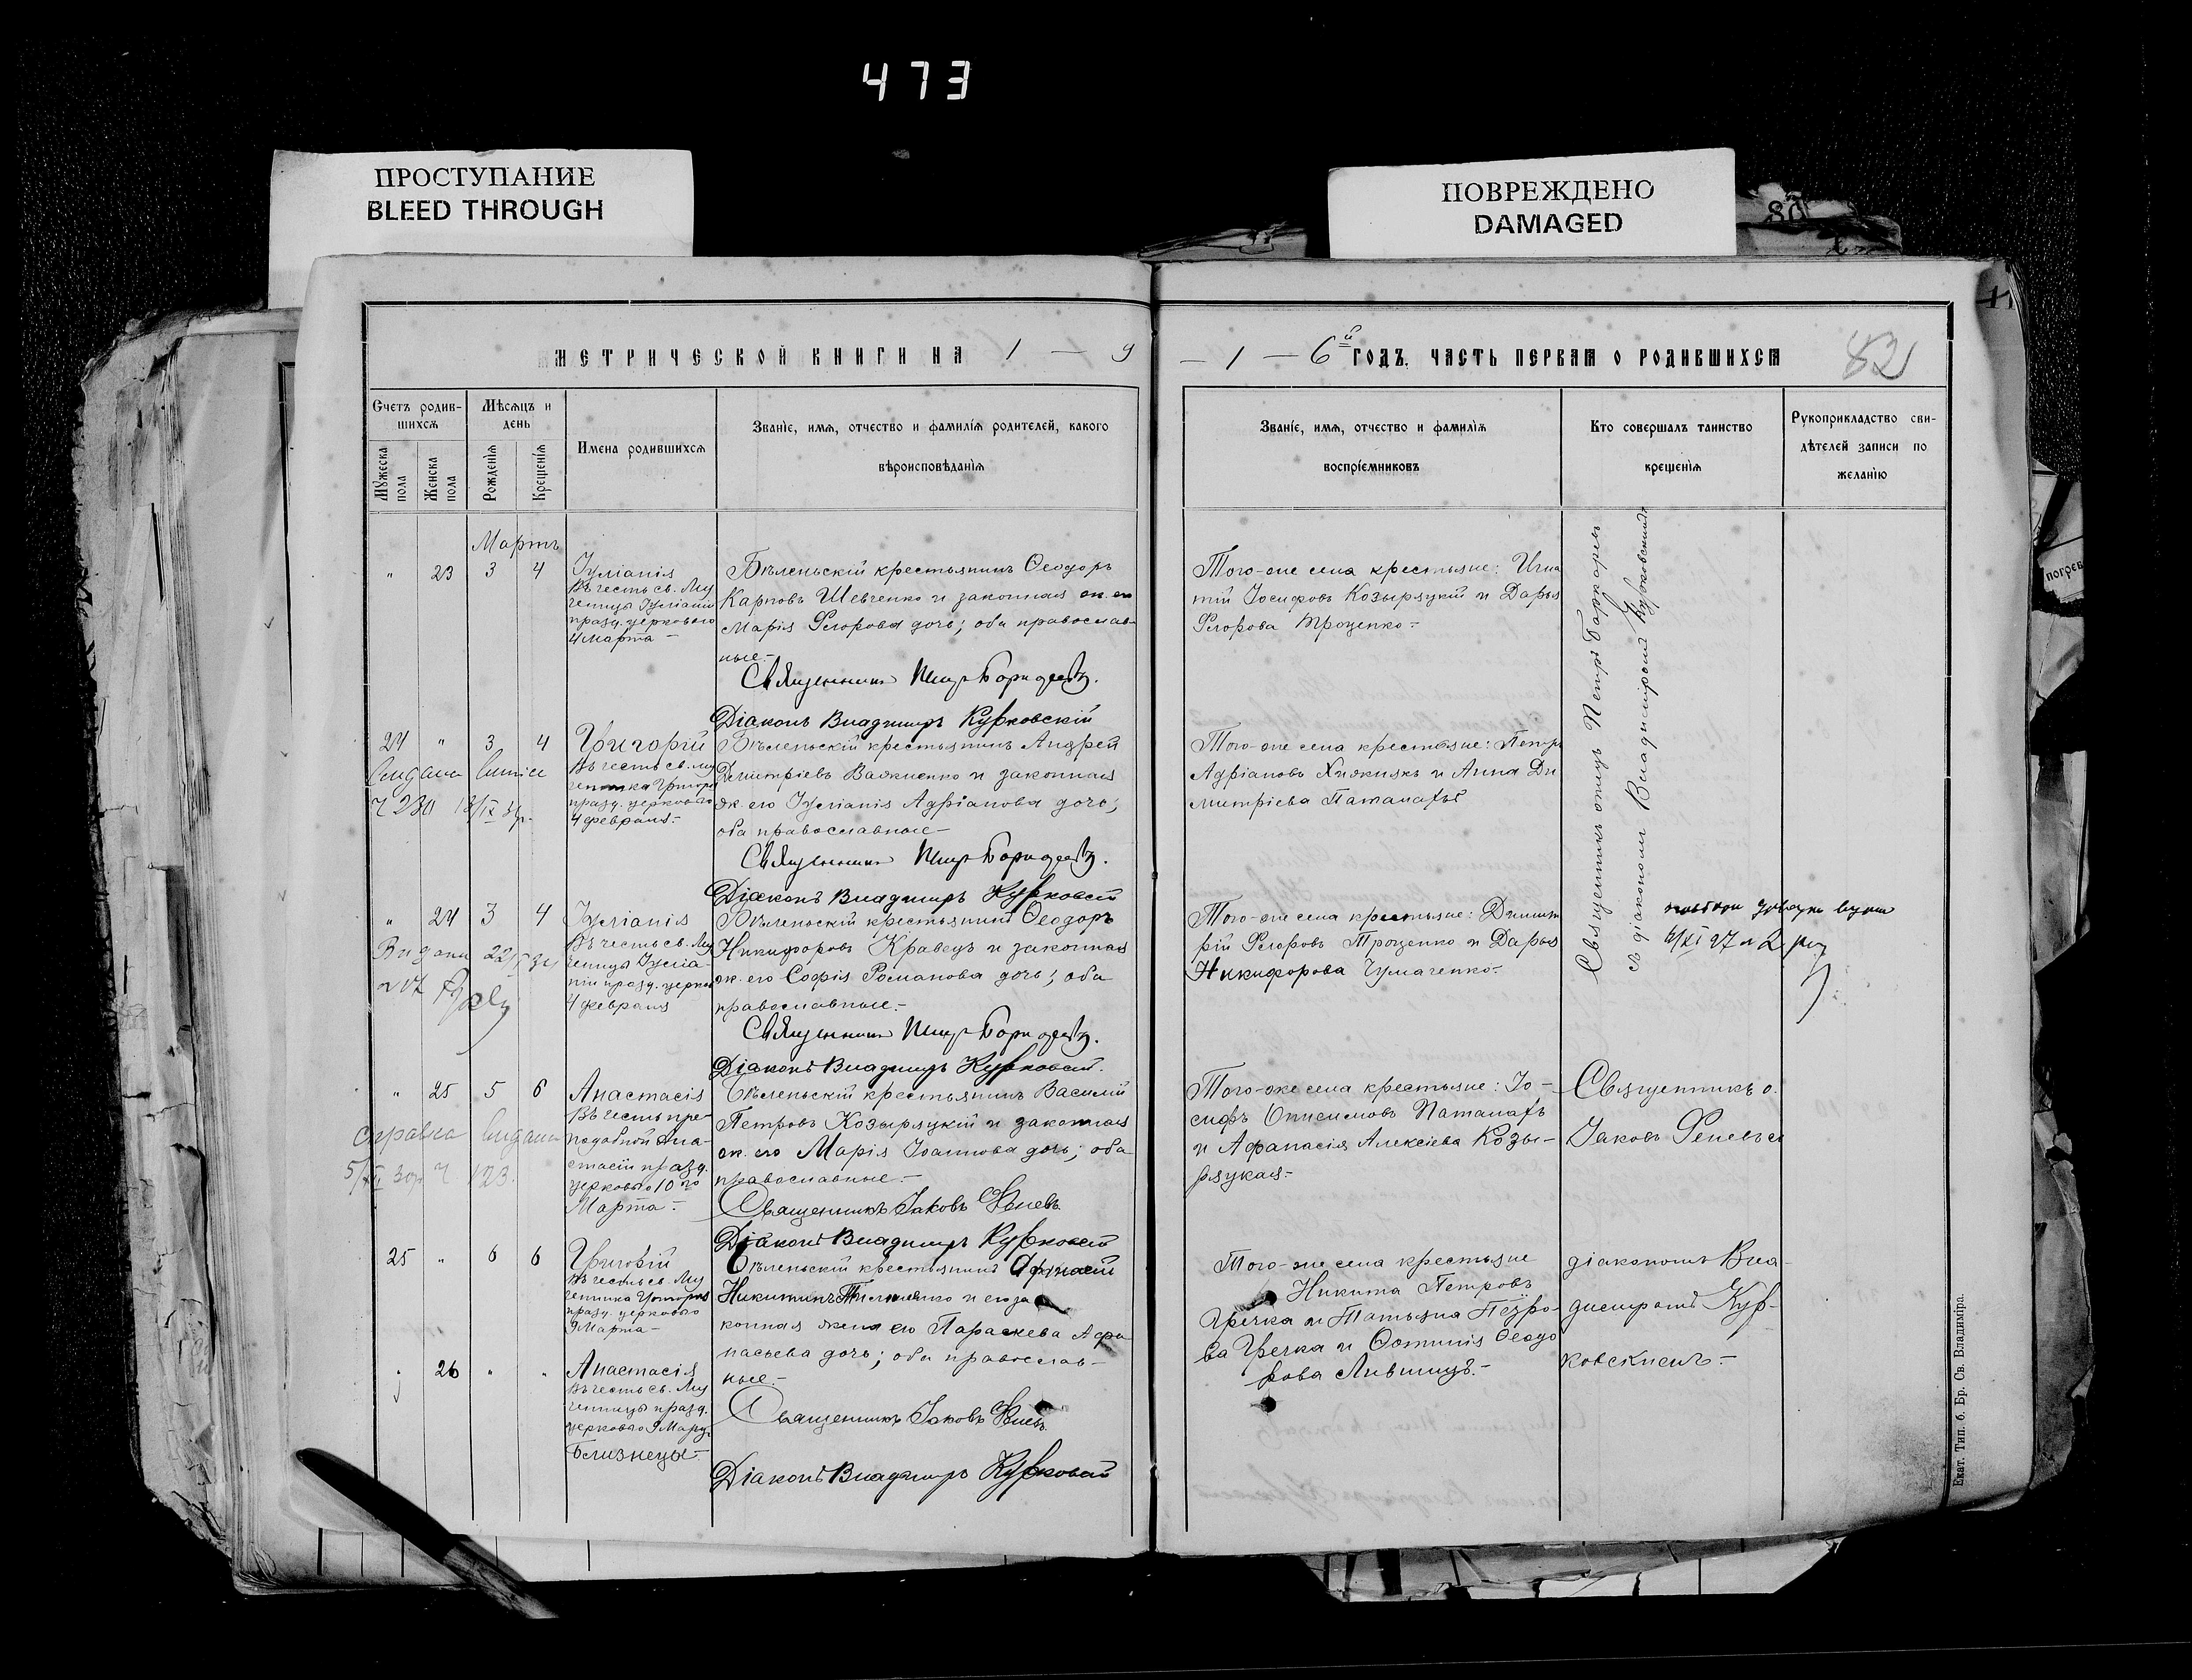 473
ПРОСТУПАНИЕ
BLEED THROUGH
ПОВРЕЖДЕНО
DAMAGED
80
МЕТРИЧЕСКОЙ КНИГИ НА 1 — 9
— 1 — 6й ГОДЪ. ЧАСТЬ ПЕРВАЯ О РОДИВШИХСЯ
82
Счетъ родив-
шихся
Мѣсяцъ и
день
Имена родившихся
Званіе, имя, отчество и фамилія родителей, какого
вѣроисповѣданія
Мужеска
пола
Женска
пола
Рожденія
Крещенія
Званіе, имя, отчество и фамилія
воспріемниковъ
Кто совершалъ таинство
крещенія
Рукоприкладство сви-
дѣтелей записи по
желанію
Мартъ
" 23 3 4
Іуліанія
Въ честь св. Му
ченицы Іуліаніи
празд. церковью
4 Марта —
Бѣленьскій крестьянинъ Ѳеодоръ
Карповъ Шевченко и законная ж. его
Марія Егорова дочь; оба православ-
ные.—
Священникъ Петръ
Діаконъ Владиміръ Курковскій
Того-же села крестьяне: Игна
тій Іосифовъ Козыряцкій и Дарья
Егорова Троценко.—
Священникъ отецъ Петръ
съ діакономъ Владиміромъ Курковскимъ
24 " 3 4
Григорій
Въ честь св. му
ченика Григорія
празд. церковью
4 февраля.—
Бѣленьскій крестьянинъ Андрей
Дмитріевъ Важненко и законная
ж. его Іуліанія Адріанова дочь;
оба православные —
Священникъ Петръ
Діаконъ Владиміръ Курковскій
Того-же села крестьяне: Петръ
Адріановъ Хижнякъ и Анна Ди
митріева Паталахъ
" 24 3 4
Іуліанія
Въ честь св. Му
ченицы Іуліа-
ніи празд. церков
4 февраля
Бѣленьскій крестьянинъ Ѳеодоръ
Никифоровъ Кравецъ и законная
ж. его Софія Романова дочь; оба
православные.—
Священникъ Петръ
Діаконъ Владиміръ Курковскій.
Того-же села крестьяне: Димит
рій Егоровъ Троценко и Дарья
Никифорова Чумаченко.—
" 25 5 6
Анастасія
Въ честь пре-
подобной Ана-
стасіи празд.
церковью 10го
Марта.—
справка видана
123.
Бѣленьскій крестьянинъ Василій
Петровъ Козыряцкій и законная
ж. его Марія Іоаннова дочь; оба
православные.—
Священникъ Іаковъ
Діаконъ Владиміръ Курковскій
Того-же села крестьяне: Іо-
сифъ Онисимовъ Паталахъ
и Афанасія Алексіева Козы-
ряцкая.—
Священникъ о.
Іаковъ
25 " 6 6
Григорій
Въ честь св. Му
ченика Григорія
празд. церковью
9 Марта —
Бѣленьскій крестьянинъ Афанасій
Никитинъ и его за
конная жена его Параскева Афа
насьева дочь; оба православ-
ные.—
Священникъ Іаковъ
Діаконъ Владиміръ Курковскій
Того-же села крестьяне
Никита Петровъ
Гречка и Татьяна Петро-
ва Гречка и Ѳеодо
рова
діакономъ Вла-
диміромъ Кур-
ковскимъ.—
" 26 " "
Анастасія
Въ честь св. Му
ченицы празд.
церковью 9 Марта
Близнецы.—
Екат. Тип. б. Бр. Св. Владиміра.